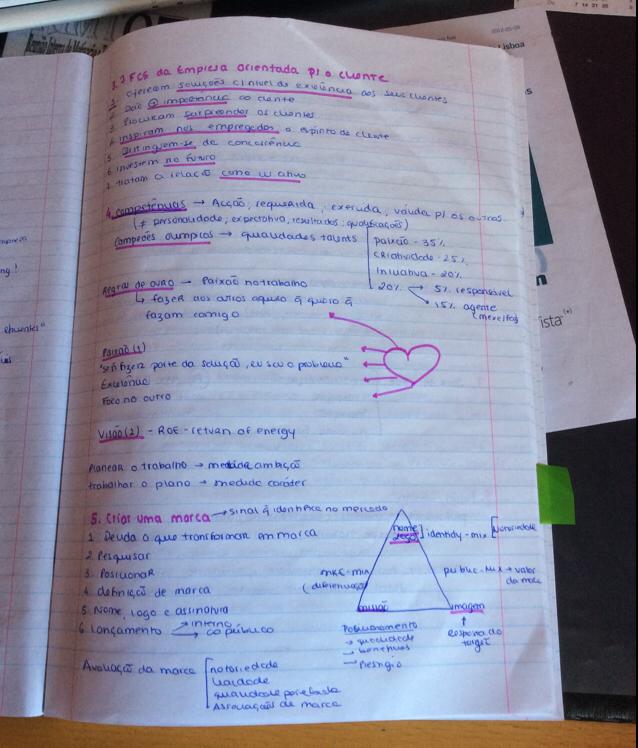 3. 7 FCS da Empresa orientada p/ o cliente
1. Oferecem soluções c/ nível de excelência aos seus clientes
2. Dão importância ao cliente
3. Procuram surpreender os clientes
4. Inspiram nos empregados o espírito de cliente
5. Distinguem-se da concorrência
6. Investem no futuro
7. tratam a relação como um ativo
4. Competências → Acção, requerida, execuda, válida p/ os outros
(≠ personalidade, expectativa, resultados, qualificações)
Campeões olímpicos → qualidades talents
paixão - 35%
criatividade - 25%
Iniciativa - 20%
20% → 5% responsável
15% agente
(mexe/faz)
Regra de ouro → Paixão no trabalho
↳ fazer aos outros aquilo q̃ quero q̃
fazam comigo
Paixão (1)
"se ñ fizer parte da solução, eu sou o problema"
Excelência
Foco no outro
Visão (2) - ROE - return of energy
Planear o trabalho → medida ambição
trabalhar o plano → medida caráter
5. Criar uma marca → sinal q̃ identifica no mercado
1 Decida o que transformar em marca
2 Pesquisar
3 Posicionar
4 definição de marca
5 Nome, logo e assinatura
6 Lançamento → interno
→ ao público
nome
logo ] identidy-mix [Notoriedade
mkt-mix
(diferenciação)
public-mix → valor
da marca
missão
imagem
↑
Resposta do
target
Posicionamento
→ qualidade
→ benefícios
→ Prestígio
Avaliação da marca [ notoriedade
lealdade
qualidade percebida
Associações de marca
ista
Lisboa